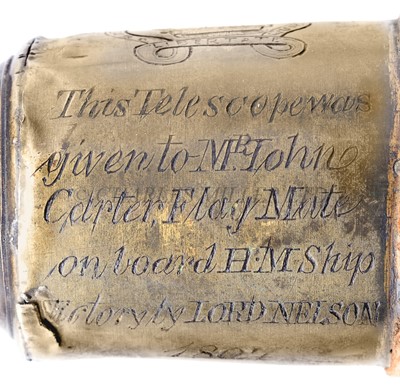 This Telescope was
given to Mr. John
Carter, Flag Mate
on board H:M Ship
Victory by LORD NELSON